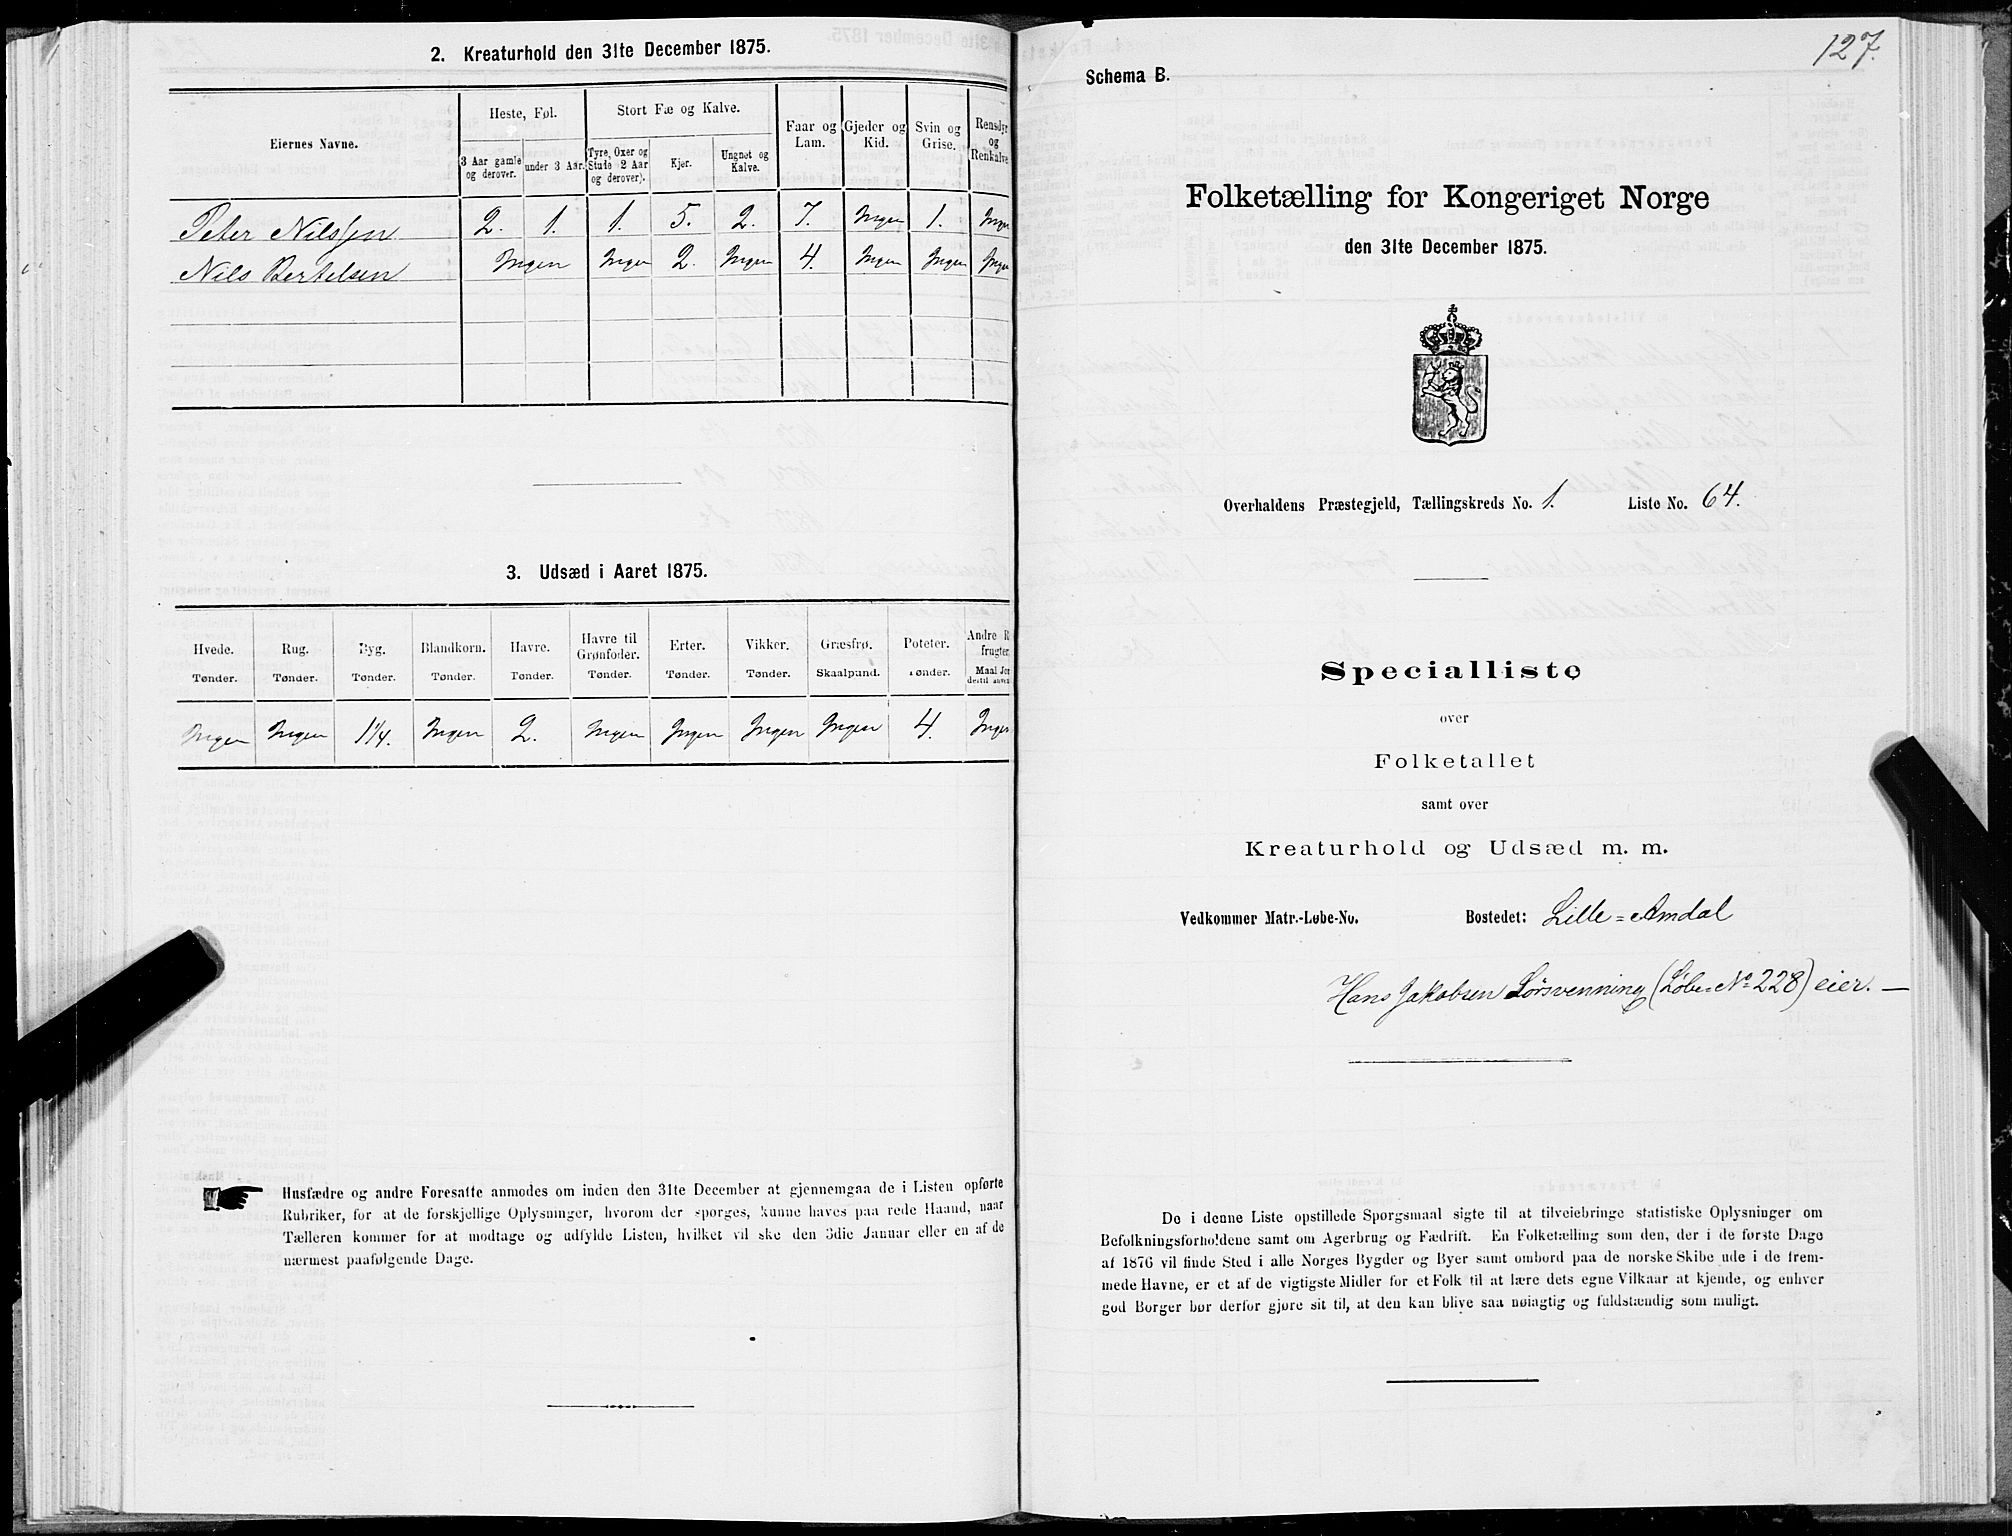 2. Kreaturhold den 31te December 1875.
Eiernes Navne.
Heste, Føl.
Stort Fæ og Kalve.
Faar og Lam.
Gjeder og Kid.
Svin og Grise.
Rensdyr og Renkalve
3 Aar gamle og derover.
under 3 Aar.
Tyre, Oxer og Stude (2 Aar og derover).
Kjer.
Ungnøt og Kalve.
Peter Nilssen 2. 1. 1. 5. 2. 7. Ingen 1. Ingen
Nils Bertelsen Ingen Ingen 2. Ingen 4. Ingen Ingen Ingen
3. Udsæd i Aaret 1875.
Hvede. Rug. Byg. Blandkorn. Havre. Havre til Grønfoder. Erter. Vikker. Græsfrø. Poteter. Andre R frugter
Tønder. Tønder. Tønder. Tønder. Tønder. Tønder. Tønder. Tønder. Skaalpund. Tønder. Maal Jor dertil anven
Ingen Ingen 1 1/4. Ingen 2. Ingen Ingen Ingen Ingen 4. Ingen
Husfædre og andre Foresatte anmodes om inden den 31te December at gjennemgaa de i Listen opførte
Rubriker, for at de forskjellige Oplysninger, hvorom der spørges, kunne haves paa rede Haand, naar
Tælleren kommer for at modtage og udfylde Listen, hvilket vil ske den 3die Januar eller en af de
nærmest paafølgende Dage.
127.
Schema B.
Folketælling for Kongeriget Norge
den 31te December 1875.
Overhaldens Præstegjeld, Tællingskreds No. 1. Liste No. 64.
Specialliste
over
Folketallet
samt over
Kreaturhold og Udsæd m. m.
Vedkommer Matr.-Løbe-No. Bostedet: Lille-Amdal
Hans Jakobsen Lørsvenning (Løbe-No 228) eier. —
De i denne Liste opstillede Spørgsmaal sigte til at tilveiebringe statistiske Oplysninger om
Befolkningsforholdene samt om Agerbrug og Fædrift. En Folketælling som den, der i de første Dage
af 1876 vil finde Sted i alle Norges Bygder og Byer samt ombord paa de norske Skibe ude i de frem-
mede Havne, er et af de vigtigste Midler for et Folk til at lære dets egne Vilkaar at kjende, og enhver
god Borger bør derfor gjøre sit til, at den kan blive saa nøiagtig og fuldstændig som muligt.